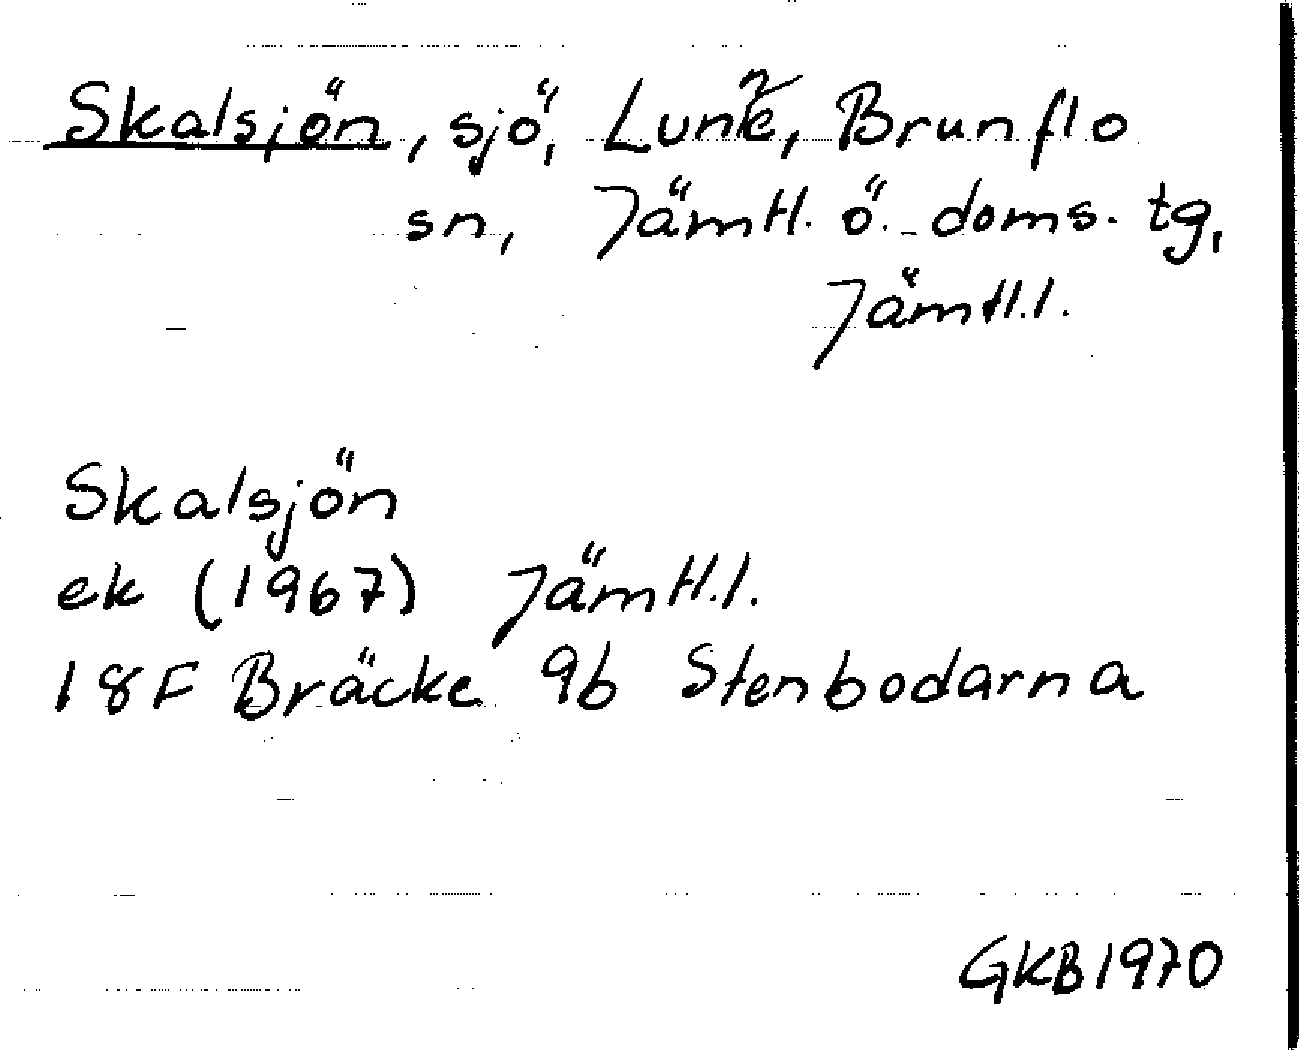 Skalsjön, sjö, Lunne, Brunflo
sn, Jämtl. ö. doms. tg,
Jämtl.l.
Skalsjön
ek (1967) Jämtl.l.
18F Bräcke 9b Stenbodarna
GKB1970